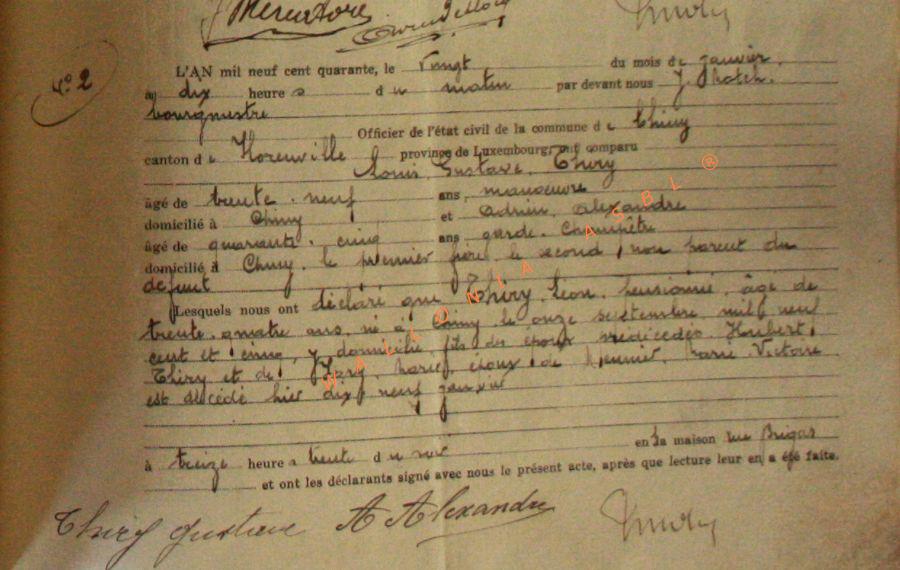 J Mercatoris
N° 2
L'AN mil neuf cent quarante, le Vingt du mois de janvier.
au dix heures du matin par devant nous J.
bourgmestre
Officier de l'état civil de la commune de Chiny
canton de Florenville province de Luxembourg, ont comparu
Louis, Gustave, Thiry
âgé de trente-neuf ans, manoeuvre
domicilié à Chiny et Adrien, Alexandre
âgé de quarante-cinq ans, garde-champêtre
domicilié à Chiny, le premier frère, le second, non parent du
défunt
Lesquels nous ont déclaré que Thiry, Léon, pensionné, âgé de
trente-quatre ans, né à Chiny, le onze septembre mil neuf
cent et cinq, y domicilié, fils des époux prédécédés, Hubert,
Thiry et de Marie, époux de Marie, Victoire
est décédé hier dix neuf janvier
à treize heures trente du soir en sa maison rue
et ont les déclarants signé avec nous le présent acte, après que lecture leur en a été faite.
Thiry Gustave A Alexandre
WALLONIA ASBL ®